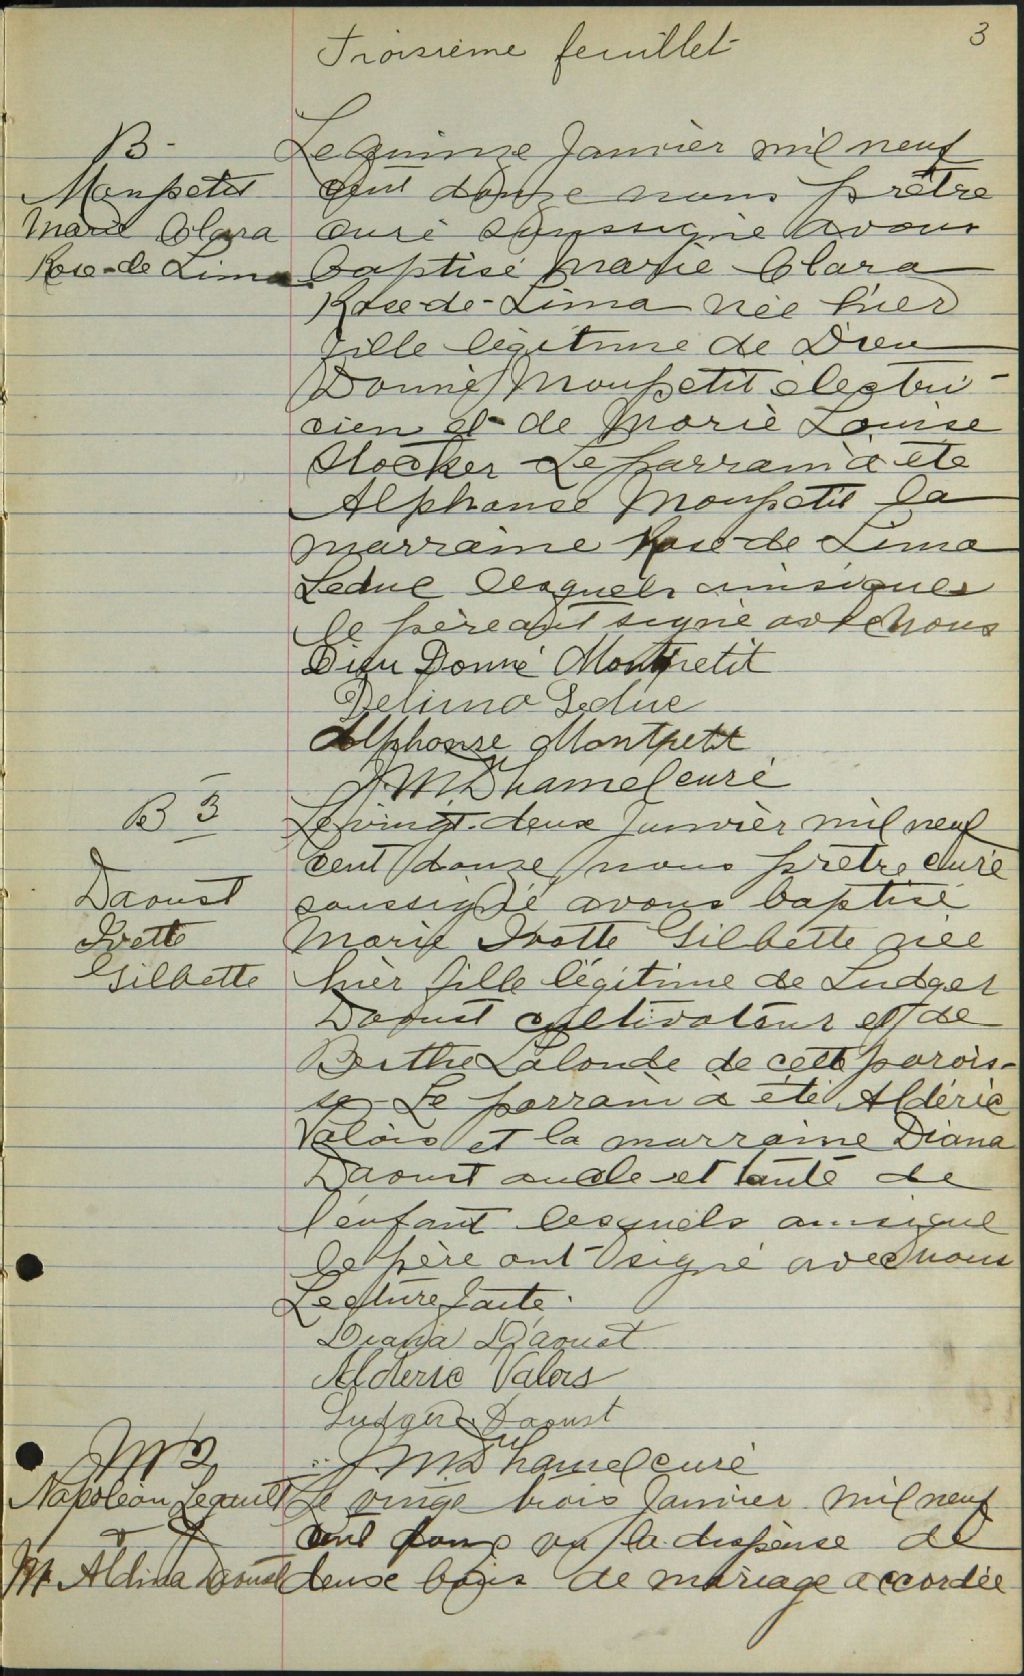 Troisième feuillet
3
B-
Monpetit
Marie Clara
Rose-de Lima
Le quinze Janvièr mil neuf
cent douze nous prêtre
curé soussigné avons
baptisé Marie Clara
Rose-de-Lima née hier
fille légitime de Dieu
Donné Monpetit électri-
cien et de Marie Louise
Stocker Le parrain a été
Alphonse Monpetit la
marraine Rose-de Lima
Leduc lesquels ainsique
le père ont signé avec nous
Dieu Donné Montpetit
Delima Leduc
Alphonse Montpetit
J.M. Dhamel curé
B 3
Daoust
Ivette
Gilbette
Le vingt-deux Janvièr mil neuf
cent douze nous prêtre curé
soussigné avons baptisé
Marie Ivette Gilbette née
hièr fille légitime de Ludger
Daoust cultivateur et de
Berthe Lalonde de cette parois-
se Le parrain a été Aldéric
Valois et la marraine Diana
Daoust oncle et tante de
l'enfant lesquels ainsique
le père ont signé avec nous
Lecture faite.
Diana D'aoust
Alderic Valois
Ludger Daoust
J.M. Dhamel curé
M 2
Napoléon Legault
&
M. Aldina Daoust
Le vingt trois Janvier mil neuf
cent douze vu la dispense de
deux bans de mariage accordée